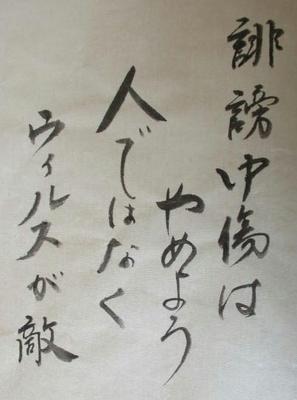 誹謗中傷は
やめよう
人ではなく
ウィルスが敵